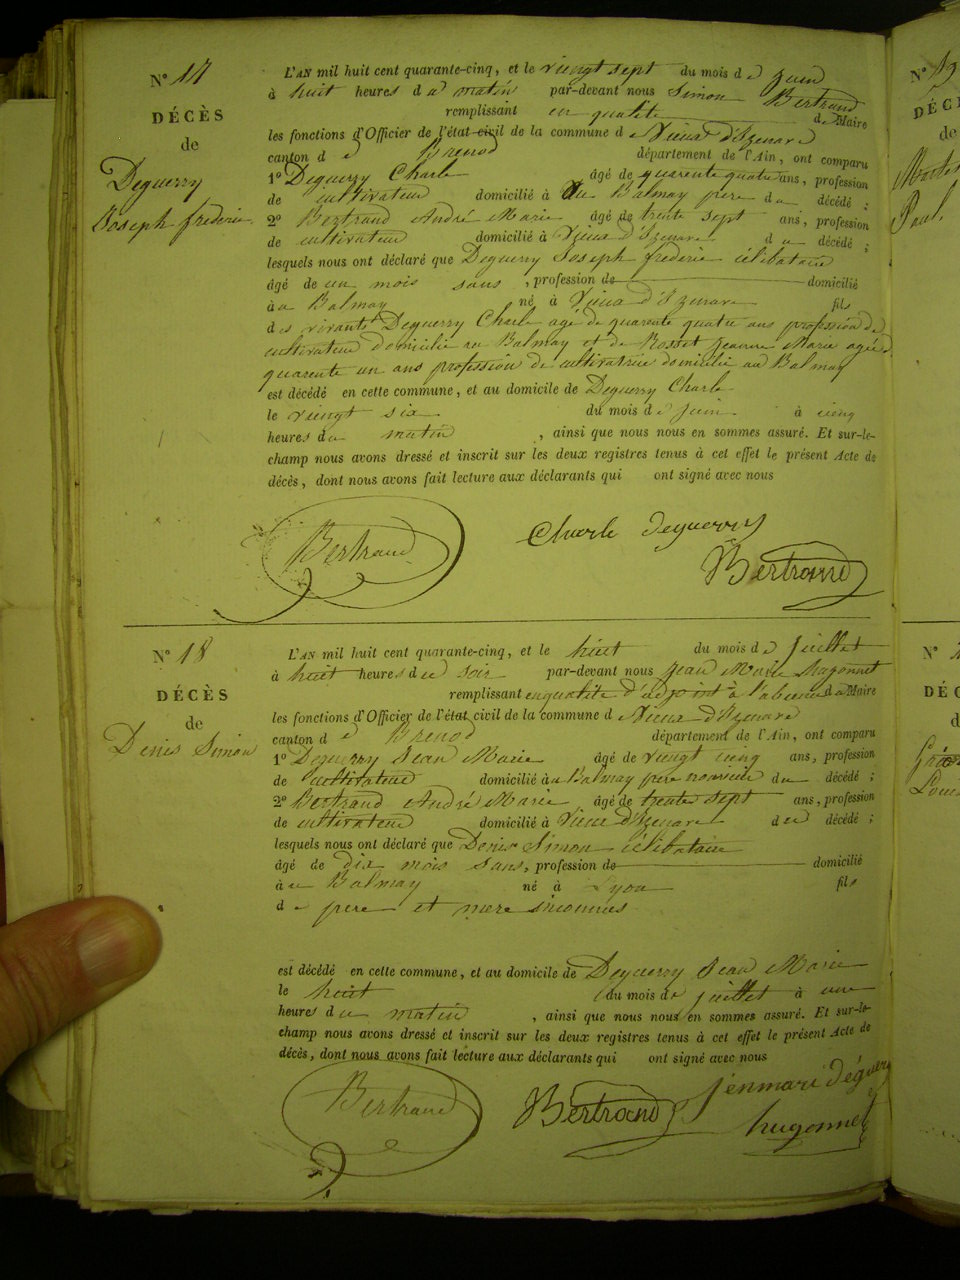 N° 17
DÉCÈS
de
Deguerry
Joseph frederic
L'AN mil huit cent quarante-cinq, et le vingt sept du mois de Juin
à huit heures du matin par-devant nous Simon Bertrand
remplissant en qualité de Maire
les fonctions d'Officier de l'état civil de la commune de Vieux d'Izenave
canton de Brenod département de l'Ain, ont comparu
1° Deguerry Charle âgé de quarente quatre ans, profession
de cultivateur domicilié à Au Balmay pere du décédé ;
2° Bertrand André Marie âgé de trente sept ans, profession
de cultivateur domicilié à Vieux d'Izenave du décédé ;
lesquels nous ont déclaré que Deguerry Joseph frederic célibataire
âgé de un mois sans , profession de domicilié
à au Balmay né à Vieux d'Izenave fils
des vivants Deguerry Charle agé de quarente quatre ans profession de
cultivateur domicilié au Balmay et de Rosset Jeanne Marie agée d
quarente un ans profession de cultivatrice domicilié au Balmay
est décédé en cette commune, et au domicile de Deguerry Charle
le vingt six du mois de juin à cinq
heures du matin , ainsi que nous nous en sommes assuré. Et sur-le-
champ nous avons dressé et inscrit sur les deux registres tenus à cet effet le présent Acte de
décès, dont nous avons fait lecture aux déclarants qui ont signé avec nous
Bertrand
Charle deguerry
Bertrand
N° 18
DÉCÈS
de
Denis Simon
L'AN mil huit cent quarante-cinq, et le huit du mois de Juillet
à huit heures du soir par-devant nous Jean Marie hugonnet
remplissant en qualité d'adjoint à l'absence du Maire
les fonctions d'Officier de l'état civil de la commune de Vieux d'Izenave
canton de Brenod département de l'Ain, ont comparu
1° Deguerry Jean Marie âgé de vingt cinq ans, profession
de cultivateur domicilié à au Balmay pere nouricie du décédé ;
2° Bertrand André Marie âgé de trente sept ans, profession
de cultivateur domicilié à Vieux d'Izenave du décédé ;
lesquels nous ont déclaré que Denis Simon célibataire
âgé de dix mois sans, profession de domicilié
à au Balmay né à Lyon fils
de pere et mere inconnus
est décédé en cette commune, et au domicile de Deguerry Jean Marie
le huit du mois de juillet à une
heures du matin , ainsi que nous nous en sommes assuré. Et sur-le-
champ nous avons dressé et inscrit sur les deux registres tenus à cet effet le présent Acte de
décès, dont nous avons fait lecture aux déclarants qui ont signé avec nous
Bertrand
Bertrand
Jenmari déguery
hugonnet
N° 19
DÉC
Paul
N°
DÉC
d